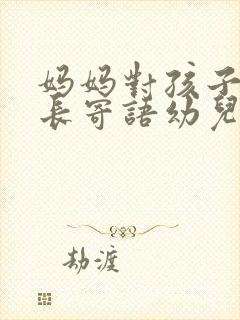 妈妈對孩子
長寄語幼兒
劫渡